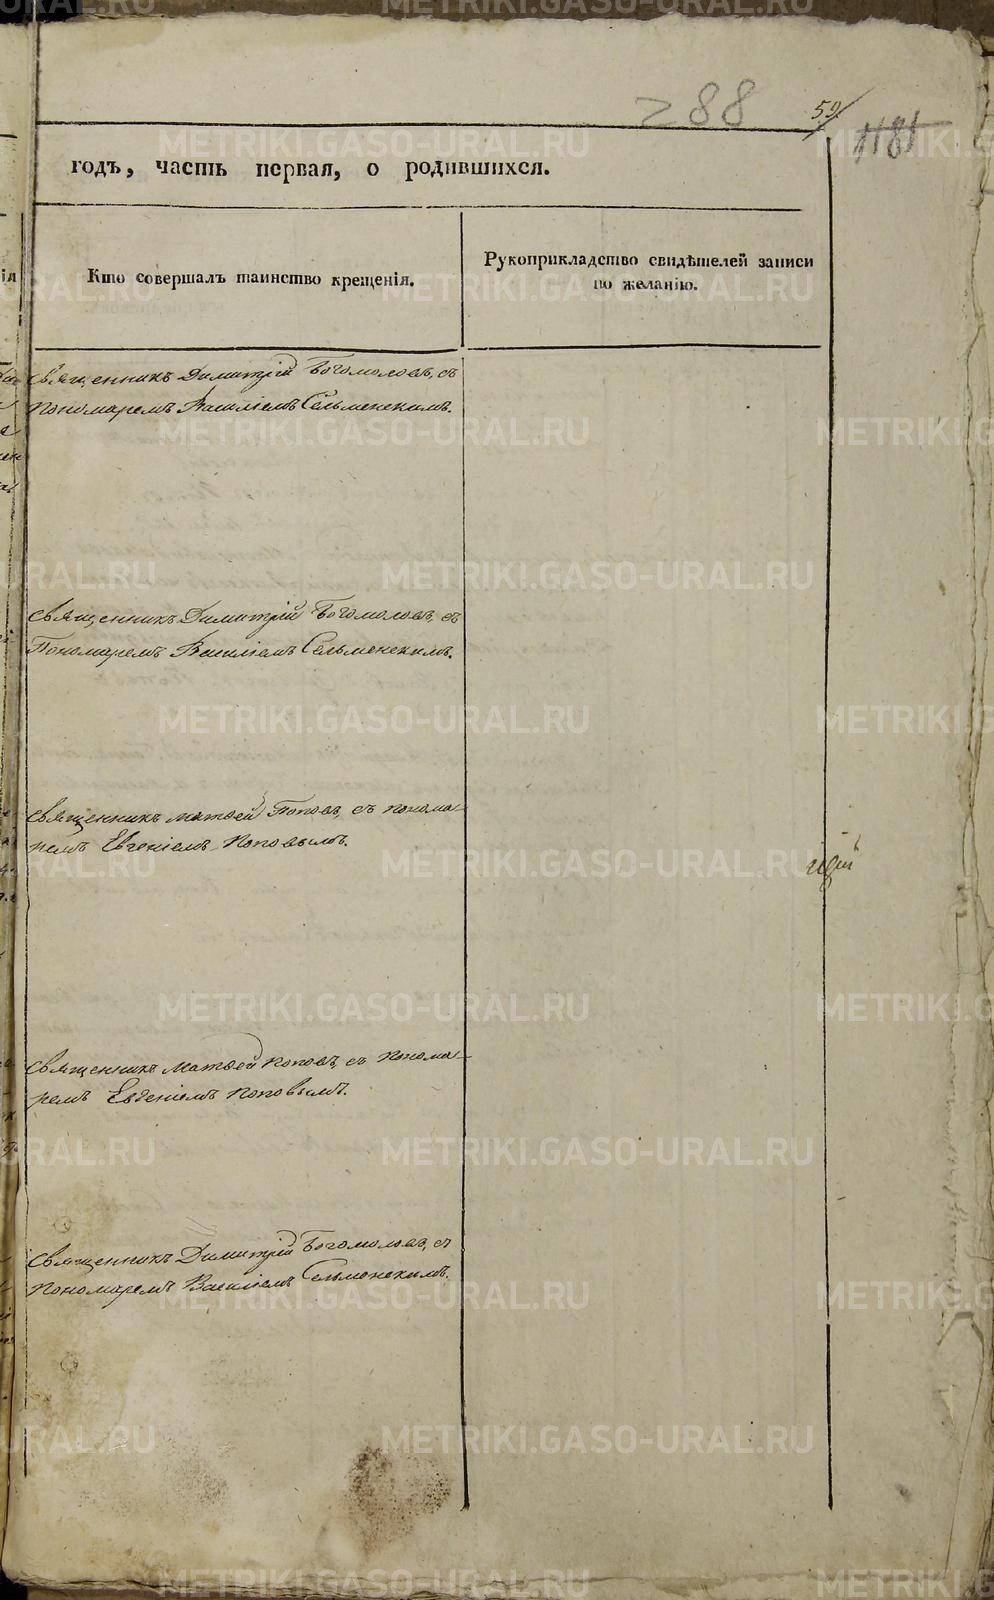 288
59
1181
годъ, часть первая, о родившихся.
Кто совершалъ таинство крещенія.
Рукоприкладство свидѣтелей записи
по желанію.
священникъ Димитрій Богомоловъ, съ
пономаремъ Василіемъ Сельменскимъ.
священникъ Димитрій Богомоловъ, съ
Пономаремъ Василіемъ Сельменскимъ.
священникъ Матвей Поповъ, съ понома
ремъ Евгеніемъ Поповымъ.
священникъ Матвей Поповъ, съ понома
ремъ Евгеніемъ Поповымъ.
священникъ Димитрій Богомоловъ, съ
пономаремъ Василіемъ Сельменскимъ.
METRIKI.GASO-URAL.RU